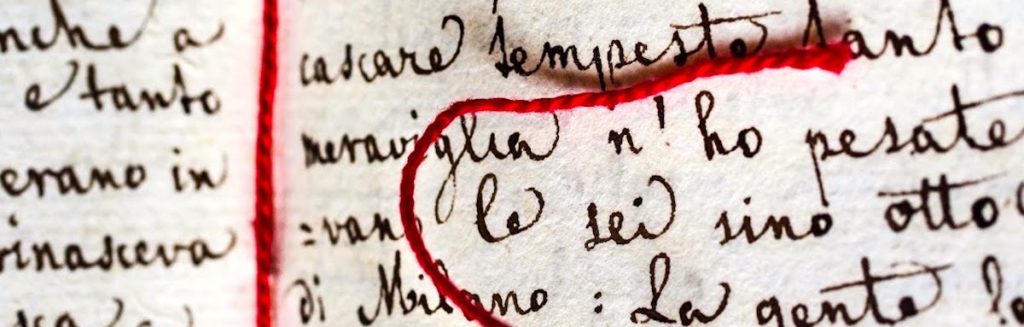 nche a
e tanto
erano in
rinasceva
cascare tempeste tanto
meraviglia n' ho pesate
=van le sei sino otto
di Milano : La gente